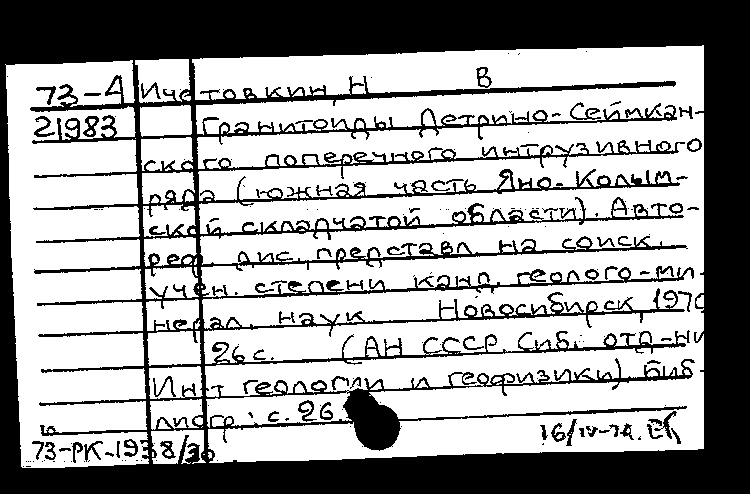 73-4 Ичетовкин, Н В
21983 Гранитоиды Детрино-Сеймкан-
ского поперечного интрузивного
ряда (южная часть Яно-Колым-
ской складчатой области). Авто-
реф. дис., представл. на соиск.
учен. степени канд. геолого-ми-
нерал. наук. Новосибирск, 1970
26 с. (АН СССР. Сиб. отд-ни
Ин-т геологии и геофизики). Биб-
лиогр.: с. 26.
73-РК-1938/30 16/IV-74.